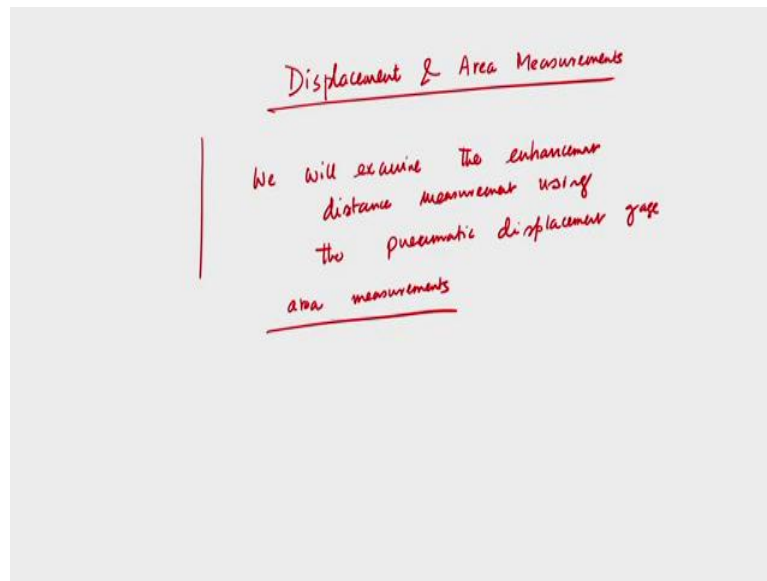 Displacement & Area Measurements
We will examine the enhancement
distance measurement using
the pneumatic displacement gage
area measurements